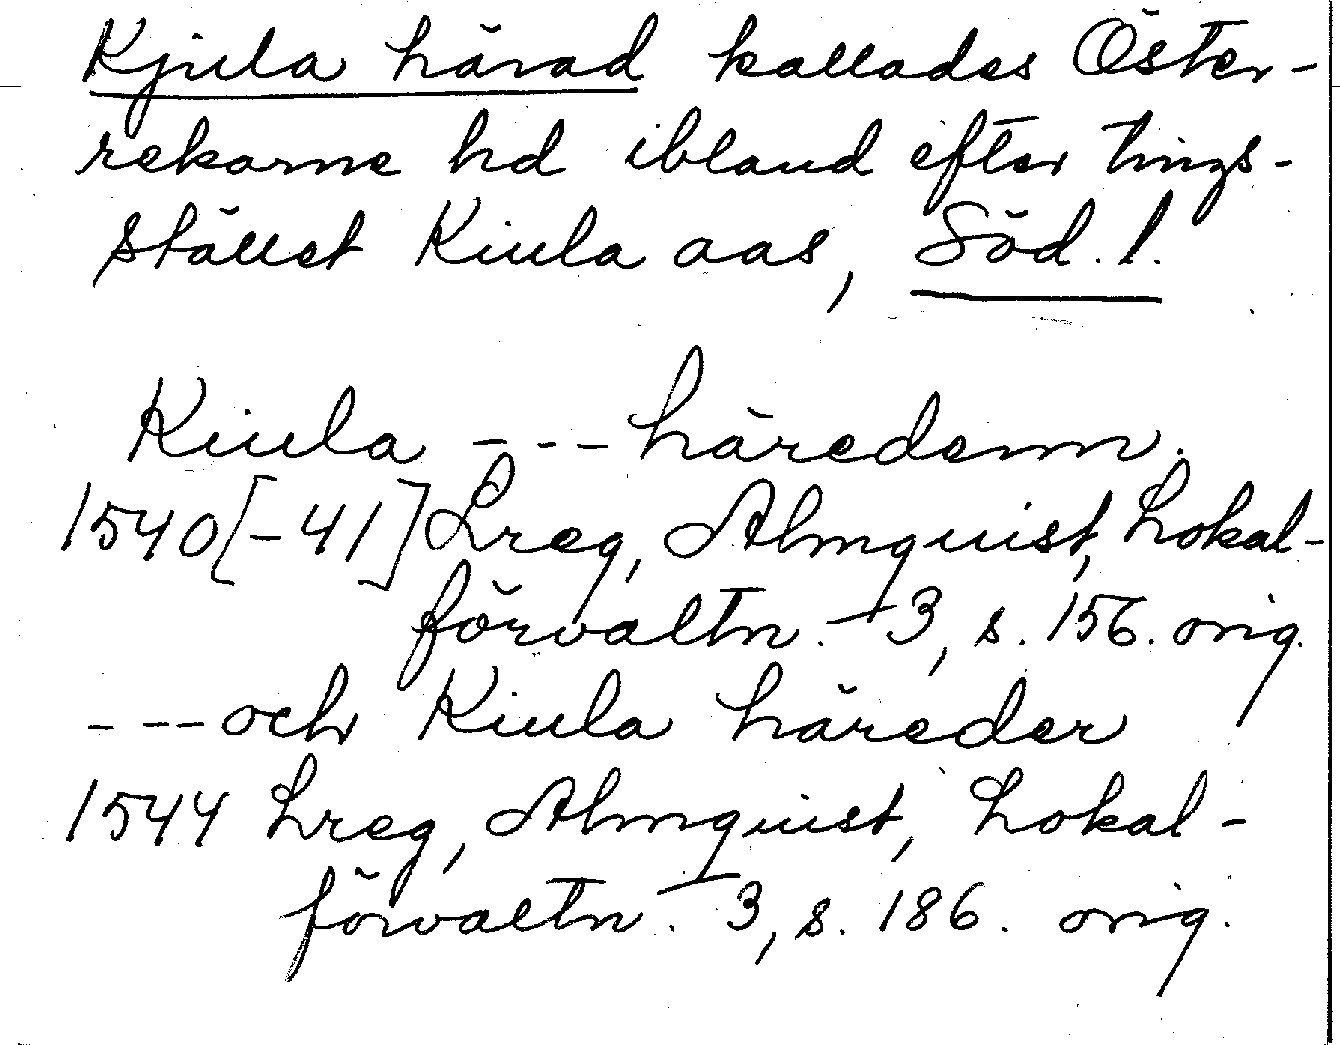 Kjula härad kallades Öster-
rekarne hd ibland efter tings-
stället Kiula aas, Söd. l.
Kiula --- häredenn.
1540[-41] Lreg, Almquist, Lokal-
förvaltn. I 3, s. 156. orig.
--- och Kiula häreder
1544 Lreg, Almquist, Lokal-
förvaltn. I 3, s. 186. orig.